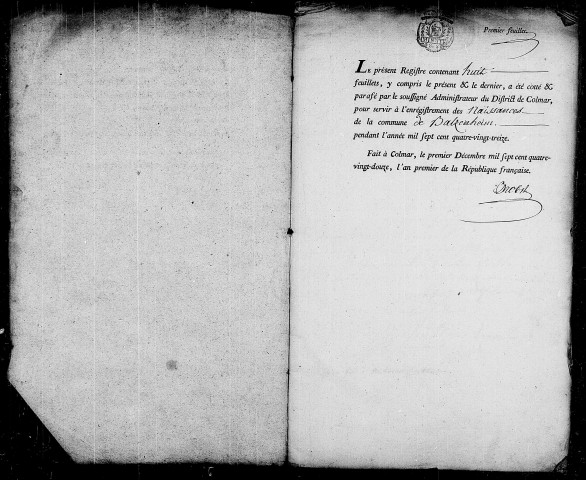 Premier feuillet.
LE présent Registre contenant huit
feuillets, y compris le présent & le dernier, a été coté &
parafé par le soussigné Administrateur du District de Colmar,
pour servir à l'enrégistrement des Naissances
de la commune de Baltzenheim
pendant l'année mil sept cent quatre-vingt-treize.
Fait à Colmar, le premier Décembre mil sept cent quatre-
vingt-douze, l'an premier de la République française.